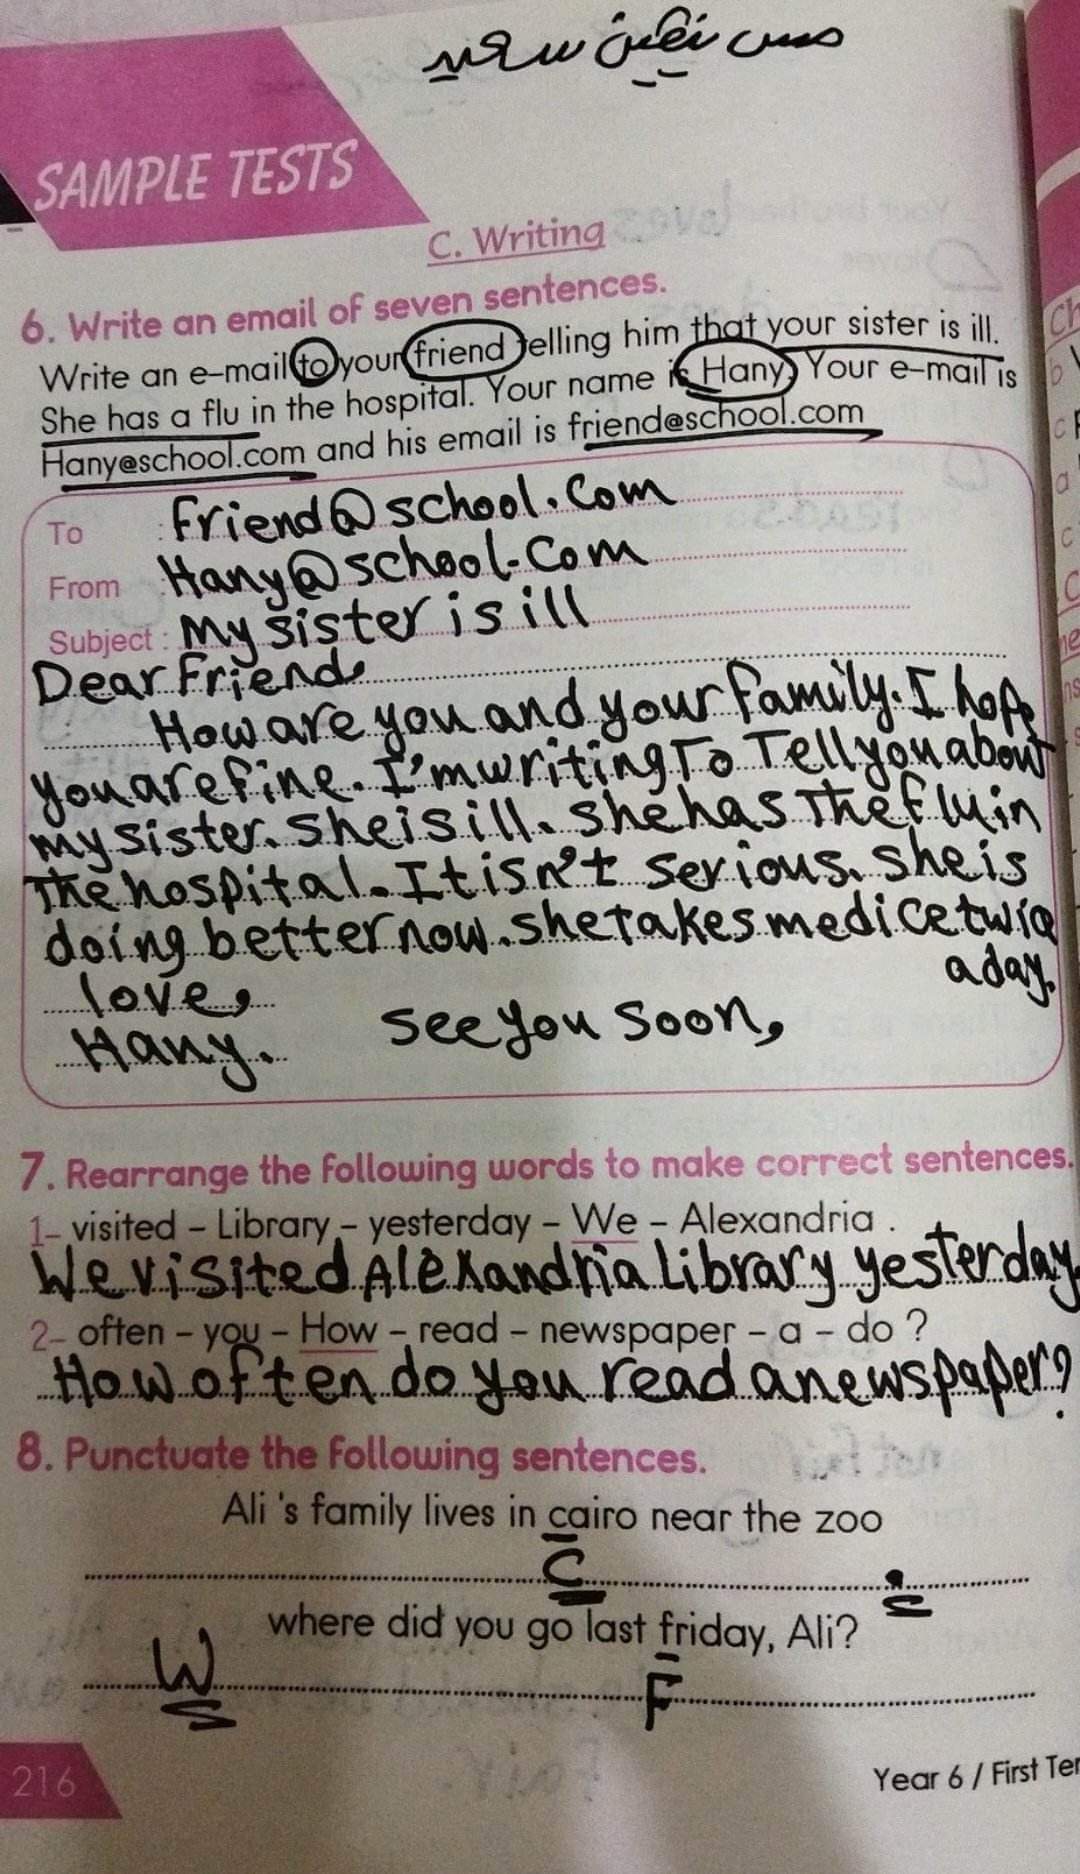 مس نيفين سعيد
SAMPLE TESTS
C. Writing
6. Write an email of seven sentences.
Write an e-mail to your friend telling him that your sister is ill.
She has a flu in the hospital. Your name is Hany. Your e-mail is
Hany@school.com and his email is friend@school.com
To : friend@school.Com
From : Hany@school.Com
Subject : My sister is ill
Dear Friend,
How are you and your family. I hope
you are fine. I'm writing To Tell you about
my sister. She is ill. She has The flu in
The hospital. It isn't serious. She is
doing better now. she takes medice twice
a day.
love,
See you soon,
Hany.
7. Rearrange the following words to make correct sentences.
1- visited – Library – yesterday – We – Alexandria .
We visited Alexandria Library yesterday.
2- often – you – How – read – newspaper – a – do ?
How often do you read a newspaper?
8. Punctuate the following sentences.
Ali 's family lives in cairo near the zoo
C .
where did you go last friday, Ali?
W F
216
Year 6 / First Ter